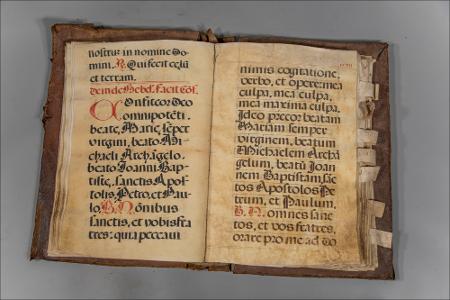 nostrū in nomine Do-
mini. R. Qui fecit celū
et terram.
Confiteor Deo
omnipotēti,
beate, Marie, sēper
virgini, beato Mi-
chaeli Archāgelo,
beato Joanni Bap-
tiste, sanctis Apos-
tolis, Petro, et Pau-
lo, B. N. ōnibus
sanctis, et vobis fra-
tres: quia peccavi
nimis cogitatione,
verbo, et opere: mea
culpa, mea culpa,
mea maxima culpa.
Ideo precor beatam
Mariam semper
virginem, beatum
Michaelem Archā-
gelum, beatū Joan-
nem Baptistam, sāc-
tos Apostolos Pe-
trum, et Paulum,
B. N. omnes sanc-
tos, et vos fratres,
orare pro me ad Do